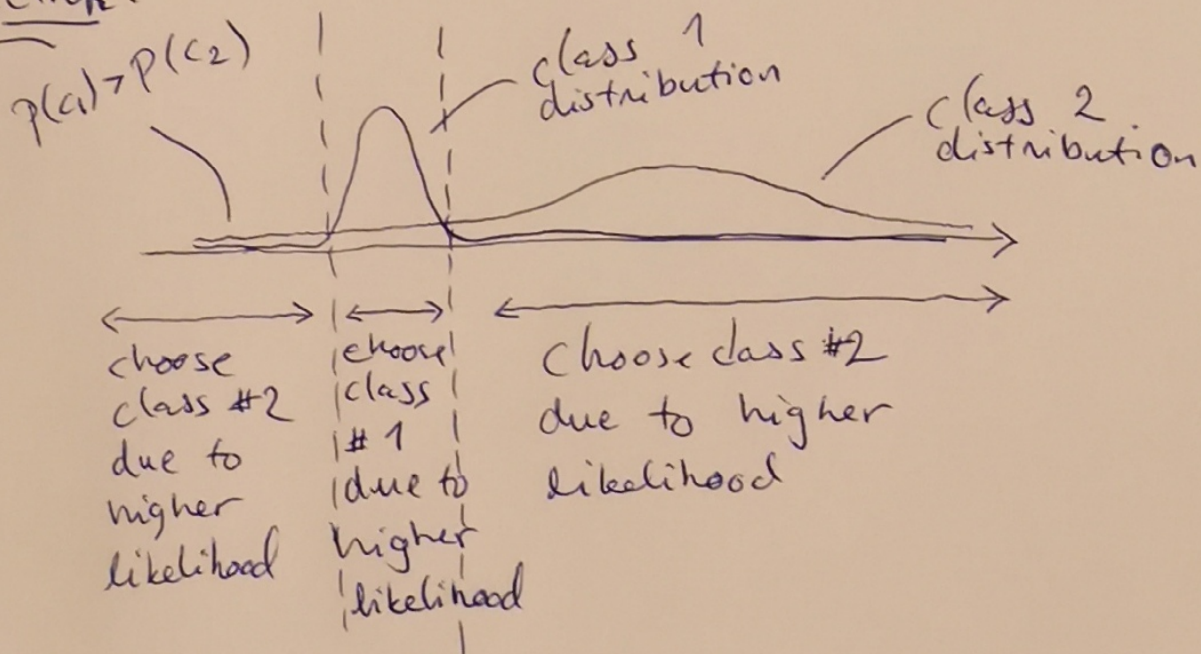 p(c₁)>p(c₂)
class 1
distribution
class 2
distribution
choose
class #2
due to
higher
likelihood
choose
class
#1
due to
higher
likelihood
Choose class #2
due to higher
likelihood